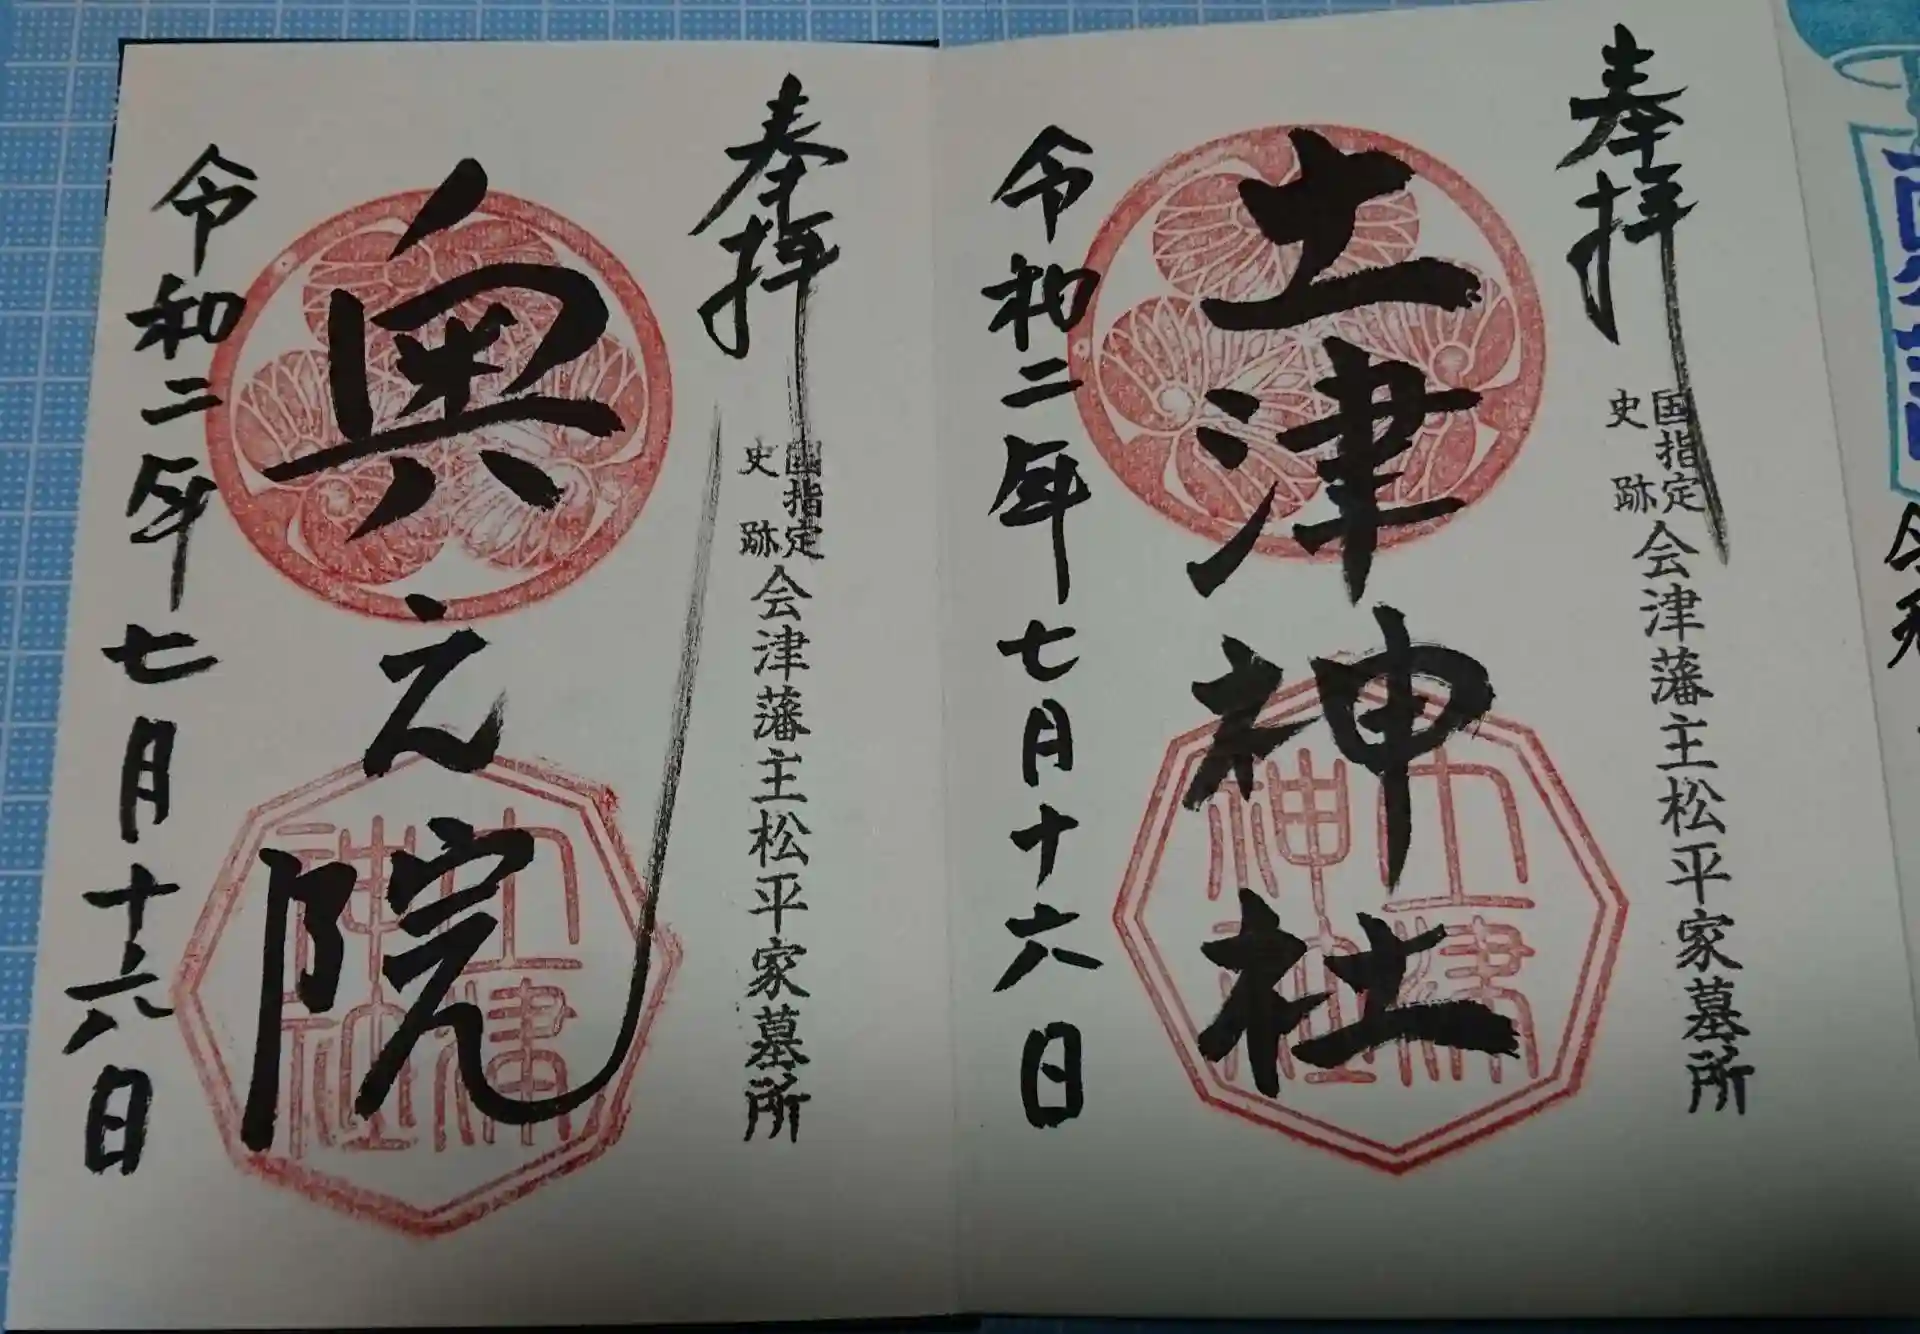 奉拝
国指定
史跡
会津藩主松平家墓所
土津神社
土津
神社
令和二年七月十六日
奉拝
国指定
史跡
会津藩主松平家墓所
奥之院
土津
神社
令和二年七月十六日